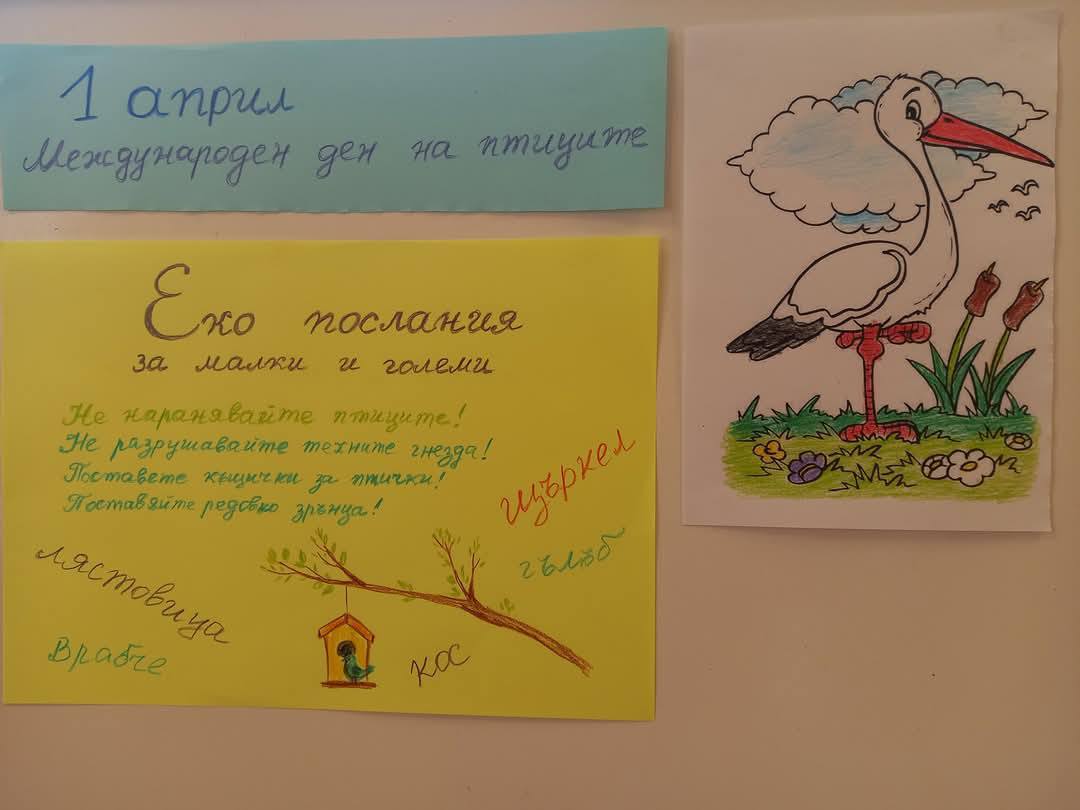 1 април
Международен ден на птиците
Еко послания
за малки и големи
Не наранявайте птиците!
Не разрушавайте техните гнезда!
Поставете къщички за птички!
Поставяйте редовно зрънца!
щъркел
гълъб
лястовица
Врабче
кос